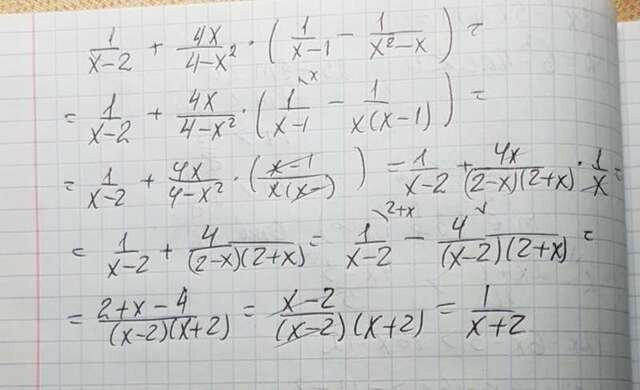 1/(x-2) + 4x/(4-x²) · (1/(x-1) - 1/(x²-x)) =
= 1/(x-2) + 4x/(4-x²) · (1/(x-1) \x - 1/(x(x-1))) =
= 1/(x-2) + 4x/(4-x²) · ((x-1)/(x(x-1))) = 1/(x-2) + 4x/((2-x)(2+x)) · 1/x =
= 1/(x-2) + 4/((2-x)(2+x)) = 1/(x-2) \2+x - 4/((x-2)(2+x)) \1 =
= (2+x-4)/((x-2)(x+2)) = (x-2)/((x-2)(x+2)) = 1/(x+2)